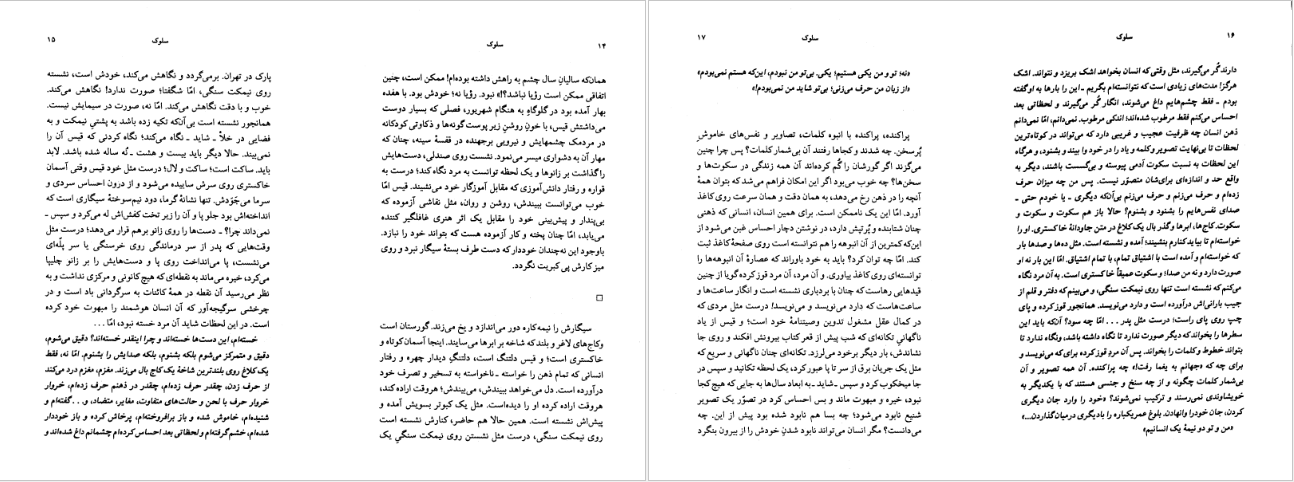 ۱۴
سلوک
همان‌که سالیانِ سال چشم به راهش داشته بوده‌ام! ممکن است، چنین
اتفاقی ممکن است رؤیا نباشد؟!» نبود. رؤیا نه؛ خودش بود. با هفده
بهار آمده بود در گلوگاهِ به هنگام شهریور، فصلی که بسیار دوست
می‌داشتش قیس، با خونِ روشنِ زیر پوست گونه‌ها و ذکاوتی کودکانه
در مردمک چشمهایش و نیرویی برجهنده در قفسهٔ سینه، چنان که
مهار آن به دشواری میسر می‌نمود. نشست روی صندلی، دست‌هایش
را گذاشت بر زانوها و یک لحظه توانست به مرد نگاه کند؛ درست به
قواره و رفتار دانش‌آموزی که مقابل آموزگار خود می‌نشیند. قیس امّا
خوب می‌توانست ببیندش، روشن و روان، مثل نقاشی آزموده که
بی‌پندار و پیش‌بینی خود را مقابل یک اثر هنری غافلگیر کننده
می‌یابد، امّا چنان پخته و کار آزموده هست که بتواند خود را نبازد.
باوجود این نه‌چندان خوددار که دست طرف بستهٔ سیگار نبرد و روی
میز کارش پی کبریت نگردد.
سیگارش را نیمه‌کاره دور می‌اندازد و یخ می‌زند. گورستان است
وکاج‌های لاغر و بلند که شاخه بر ابرها می‌سایند. اینجا آسمان‌کوتاه و
خاکستری است؛ و قیس دلتنگ است، دلتنگِ دیدار چهره و رفتار
انسانی که تمام ذهن را خواسته ـ ناخواسته به تسخیر و تصرف خود
درآورده است. دل می‌خواهد ببیندش، می‌بیندش؛ هروقت اراده کند،
هروقت اراده کرده او را دیده‌است. مثل یک کبوتر بسویش آمده و
پیش‌اش نشسته است. همین حالا هم حاضر، کنارش نشسته است
روی نیمکت سنگی، درست مثل نشستن روی نیمکت سنگیِ یک
۱۵
سلوک
پارک در تهران. برمی‌گردد و نگاهش می‌کند، خودش است، نشسته
روی نیمکت سنگی، امّا شگفتا! صورت ندارد! نگاهش می‌کند.
خوب و با دقت نگاهش می‌کند. امّا نه، صورت در سیمایش نیست.
همانجور نشسته است بی‌آنکه تکیه زده باشد به پشتیِ نیمکت و به
فضایی در خلأ ـ شاید ـ نگاه می‌کند؛ نگاه کردنی که قیس آن را
نمی‌بیند. حالا دیگر باید بیست و هشت ـ نُه ساله شده باشد. لابد
باید. ساکت است؛ ساکت و لال؛ درست مثل خود قیس وقتی آسمان
خاکستری روی سرش ساییده می‌شود و از درون احساس سردی و
سرما می‌جَوَدش. تنها نشانهٔ گرما، دود نیم‌سوختهٔ سیگاری است که
انداخته‌اش بود جلو پا و آن را زیر تخت کفش‌اش له می‌کرد و سپس ـ
نمی‌داند چرا؟ ـ دست‌ها را روی زانو برهم قرار می‌دهد؛ درست مثل
وقت‌هایی که پدر از سر درماندگی روی خرسنگی یا سر پلّه‌ای
می‌نشست، پا می‌انداخت روی پا و دست‌هایش را بر زانو چلیپا
می‌کرد، خیره می‌ماند به نقطه‌ای که هیچ کانونی و مرکزی نداشت و به
نظر می‌رسید آن نقطه در همهٔ کائنات به سرگردانی باد است و در
چرخشی سرگیجه‌آور که آن انسان هوشمند را مبهوت خود کرده
است. در این لحظات شاید آن مرد خسته نبود، امّا...
خسته‌ام، این دست‌ها خسته‌اند و چرا اینقدر خسته‌اند؟ دقیق می‌شوم،
دقیق و متمرکز می‌شوم بلکه بشنوم، بلکه صدایش را بشنوم. امّا نه، فقط
یک کلاغ روی بلندترین شاخهٔ یک کاج بال می‌زند. مغزم، مغزم درد می‌کند
از حرف زدن، چقدر حرف زده‌ام، چقدر در ذهنم حرف زده‌ام، خروار
خروار حرف با لحن و حالت‌های متفاوت، مغایر، متضاد، و... گفته‌ام و
شنیده‌ام، خاموش شده و باز برافروخته‌ام، پرخاش کرده و باز خوددار
شده‌ام، خشم گرفته‌ام و لحظاتی بعد احساس کرده‌ام چشمانم داغ شده‌اند و
۱۶
سلوک
دارند گُر می‌گیرند، مثل وقتی که انسان بخواهد اشک بریزد و نتواند. اشک
هرگز! مدت‌های زیادی است که نتوانسته‌ام بگریم ـ این را بارها به او گفته
بودم ـ فقط چشم‌هایم داغ می‌شوند، انگار گُر می‌گیرند و لحظاتی بعد
احساس می‌کنم فقط مرطوب شده‌اند؛ اندکی مرطوب. نمی‌دانم، امّا نمی‌دانم
ذهن انسان چه ظرفیت عجیب و غریبی دارد که می‌تواند در کوتاه‌ترین
لحظات تا بی‌نهایت تصویر وکلمه و یاد را در خود وا ببیند و بشنود، و هرگاه
این لحظات به نسبت سکوت آدمی پیوسته و بی‌گسست باشند، دیگر به
واقع حد و اندازه‌ای برای‌شان متصوّر نیست. پس من چه میزان حرف
زده‌ام و حرف می‌زنم و حرف می‌زنم بی‌آنکه دیگری ـ یا خودم حتی ـ
صدای نفس‌هایم را بشنود و بشنوم؟ حالا باز هم سکوت و سکوت و
سکوت. کاج‌ها، ابرها وگذر بال یک کلاغ در متن جاودانهٔ خاکستری. او را
خواسته‌ام تا بیاید کنارم بنشیند؛ آمده و نشسته است. مثل ده‌ها و صدها بار
که خواسته‌ام و آمده است با اشتیاق تمام، با تمام اشتیاق. امّا این بار نه او
صورت دارد و نه من صدا؛ و سکوت عمیقاً خاکستری است. به آن مرد نگاه
می‌کنم که نشسته است تنها روی نیمکت سنگی، و می‌بینم که دفتر و قلم از
جیب بارانی‌اش درآورده است و دارد می‌نویسد. همانجور قوز کرده و پای
چپ روی پای راست؛ درست مثل پدر... امّا چه سود؟ آنکه باید این
سطرها را بخواند که دیگر صورت ندارد تا نگاه داشته باشد، ونگاه ندارد تا
بتواند خطوط وکلمات را بخواند. پس آن مردِ قوز کرده برای که می‌نویسد و
برای چه که «جهانم به یغما رفت!» چه پراکنده. آن همه تصویر و آن
بی‌شمار کلمات چگونه و از چه سنخ و جنسی هستند که با یکدیگر به
خویشاوندی نمی‌رسند و ترکیب نمی‌شوند؟ «خود را وارد جان دیگری
کردن، جان خود را وانهادن. بلوغ عمر یکباره را با دیگری در میان گذاردن...»
«من و تو دو نیمهٔ یک انسانیم»
۱۷
سلوک
«نه؛ تو و من یکی هستیم؛ یکی. بی‌تو من نبودم، این‌که هستم نمی‌بودم»
«از زبان من حرف می‌زنی؛ بی‌تو شاید من نمی‌بودم!»
پراکنده، پراکنده با انبوه کلمات، تصاویر و نفس‌های خاموشِ
پُر سخن. چه شدند و کجاها رفتند آن بی‌شمار کلمات؟ پس چرا چنین
می‌گزند اگر گورشان را گُم کرده‌اند آن همه زندگی در سکوت‌ها و
سخن‌ها؟ چه خوب می‌بود اگر این امکان فراهم می‌شد که بتوان همهٔ
آنچه را در ذهن رخ می‌دهد، به همان دقت و همان سرعت روی کاغذ
آورد. امّا این یک ناممکن است. برای همین انسان، انسانی که ذهنی
چنان شتابنده و پُرتپش دارد، در نوشتن دچار احساس غبن می‌شود از
این‌که کمترین از آن انبوهه را هم نتوانسته است روی صفحهٔ کاغذ ثبت
کند. امّا چه توان کرد؟ باید به خود باوراند که عصارهٔ آن انبوهه‌ها را
توانسته‌ای روی کاغذ بیاوری. و آن مرد، آن مرد قوز کرده گویا از چنین
قیدهایی رهاست که چنان با بردباری نشسته است و انگار ساعت‌ها و
ساعت‌هاست که دارد می‌نویسد و می‌نویسد! درست مثل مردی که
در کمال عقل مشغول تدوین وصیتنامهٔ خود است؛ و قیس از یاد
ناگهانیِ تکانه‌ای که شب پیش از قعر کتاب بیرونش افکند و روی جا
نشاندش، بار دیگر برخود می‌لرزد. تکانه‌ای چنان ناگهانی و سریع که
مثل یک جریان برق از سر تا پا عبور کرد، یک لحظه تکانید و سپس در
جا میخکوب کرد و سپس ـ شاید ـ به ابعاد سال‌ها به جایی که هیچ کجا
نبود، خیره و مبهوت ماند و بس احساس کرد در تصوّر یک تصویر
شنیع نابود می‌شود؛ چه بسا هم نابود شده بود پیش از این. چه
می‌دانست؟ مگر انسان می‌تواند نابود شدنِ خودش را از بیرون بنگرد